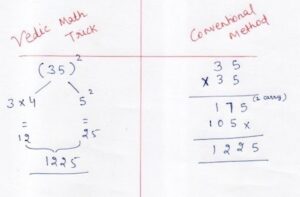 Vedic Math
Trick
(35)²
3 x 4
5²
=
=
12
25
1225
Conventional
Method
3 5
x 3 5
1 7 5 (2 carry)
1 0 5 x
1 2 2 5